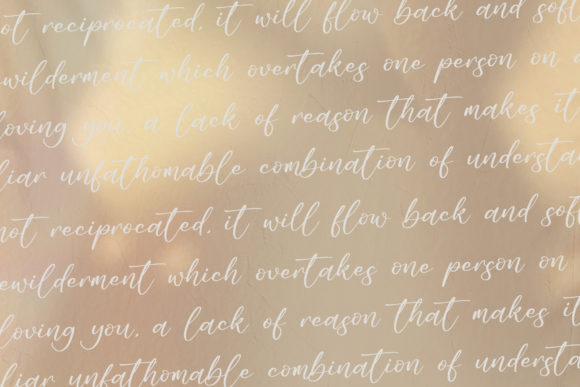 not reciprocated, it will flow back and soft
ewilderment which overtakes one person on a
loving you, a lack of reason that makes it
liar unfathomable combination of understa
not reciprocated, it will flow back and soft
ewilderment which overtakes one person on
loving you, a lack of reason that makes it
liar unfathomable combination of understa